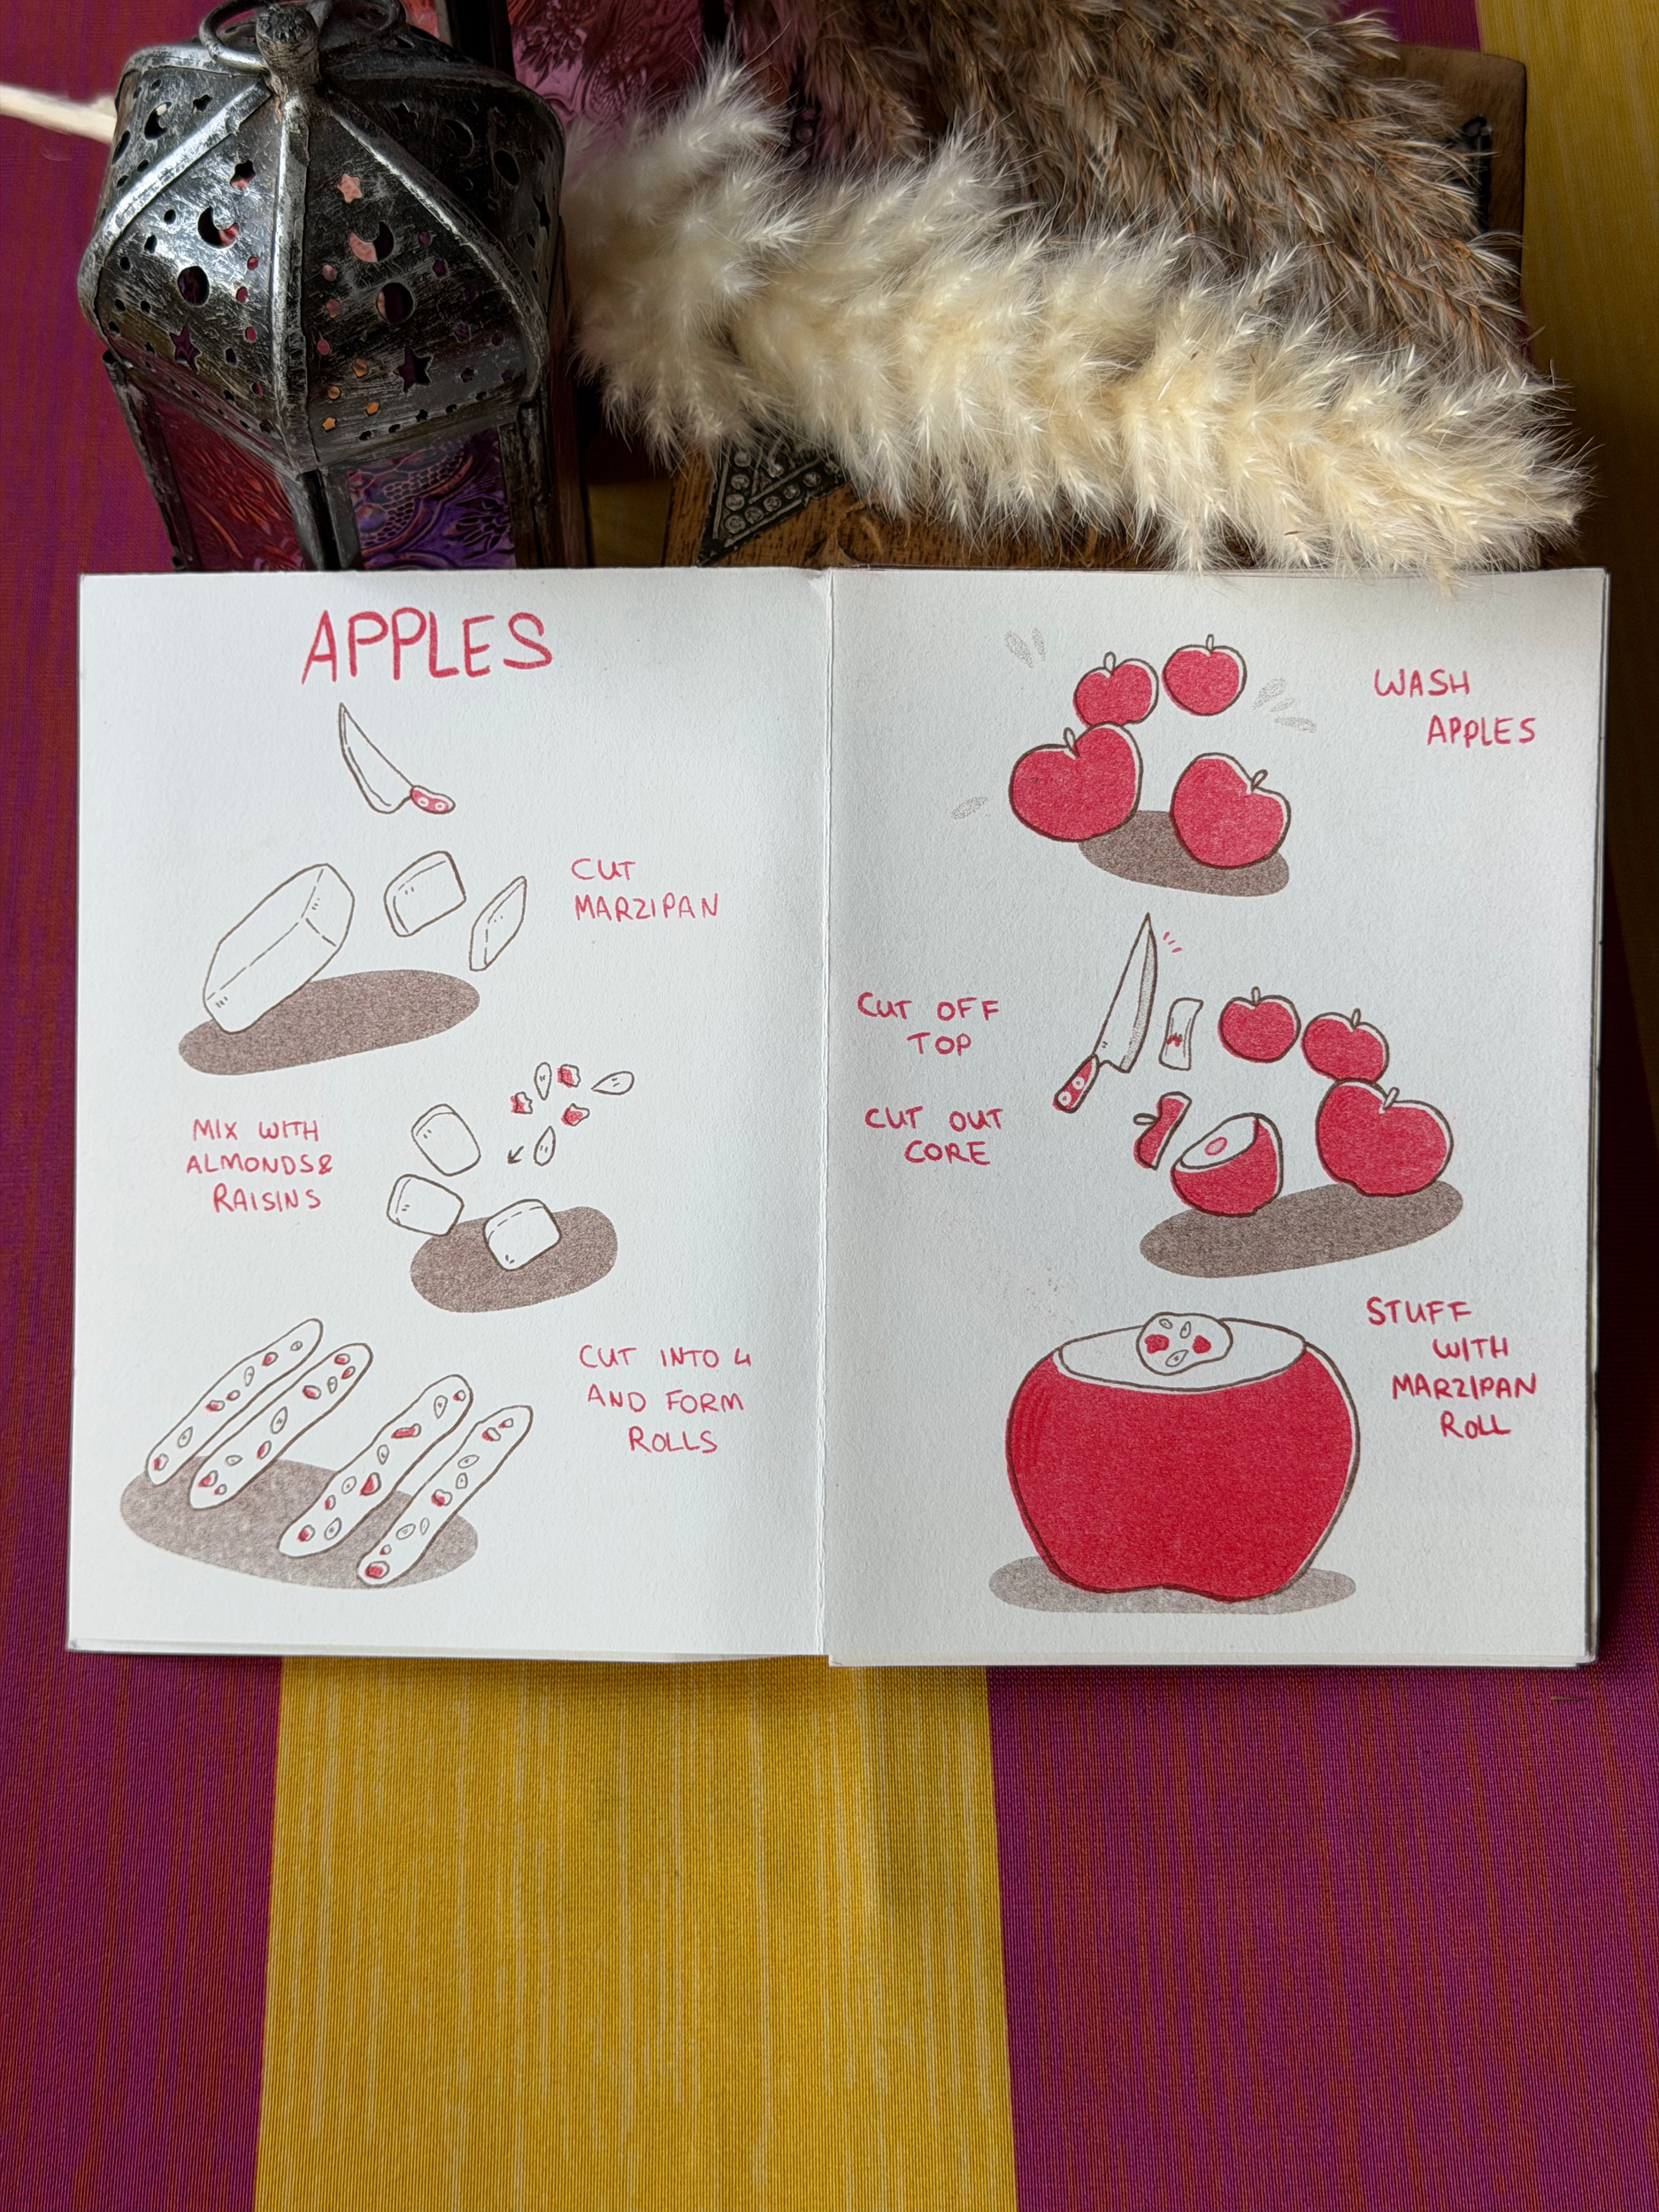 APPLES
CUT
MARZIPAN
MIX WITH
ALMONDS&
RAISINS
CUT INTO 4
AND FORM
ROLLS
WASH
APPLES
CUT OFF
TOP
CUT OUT
CORE
STUFF
WITH
MARZIPAN
ROLL